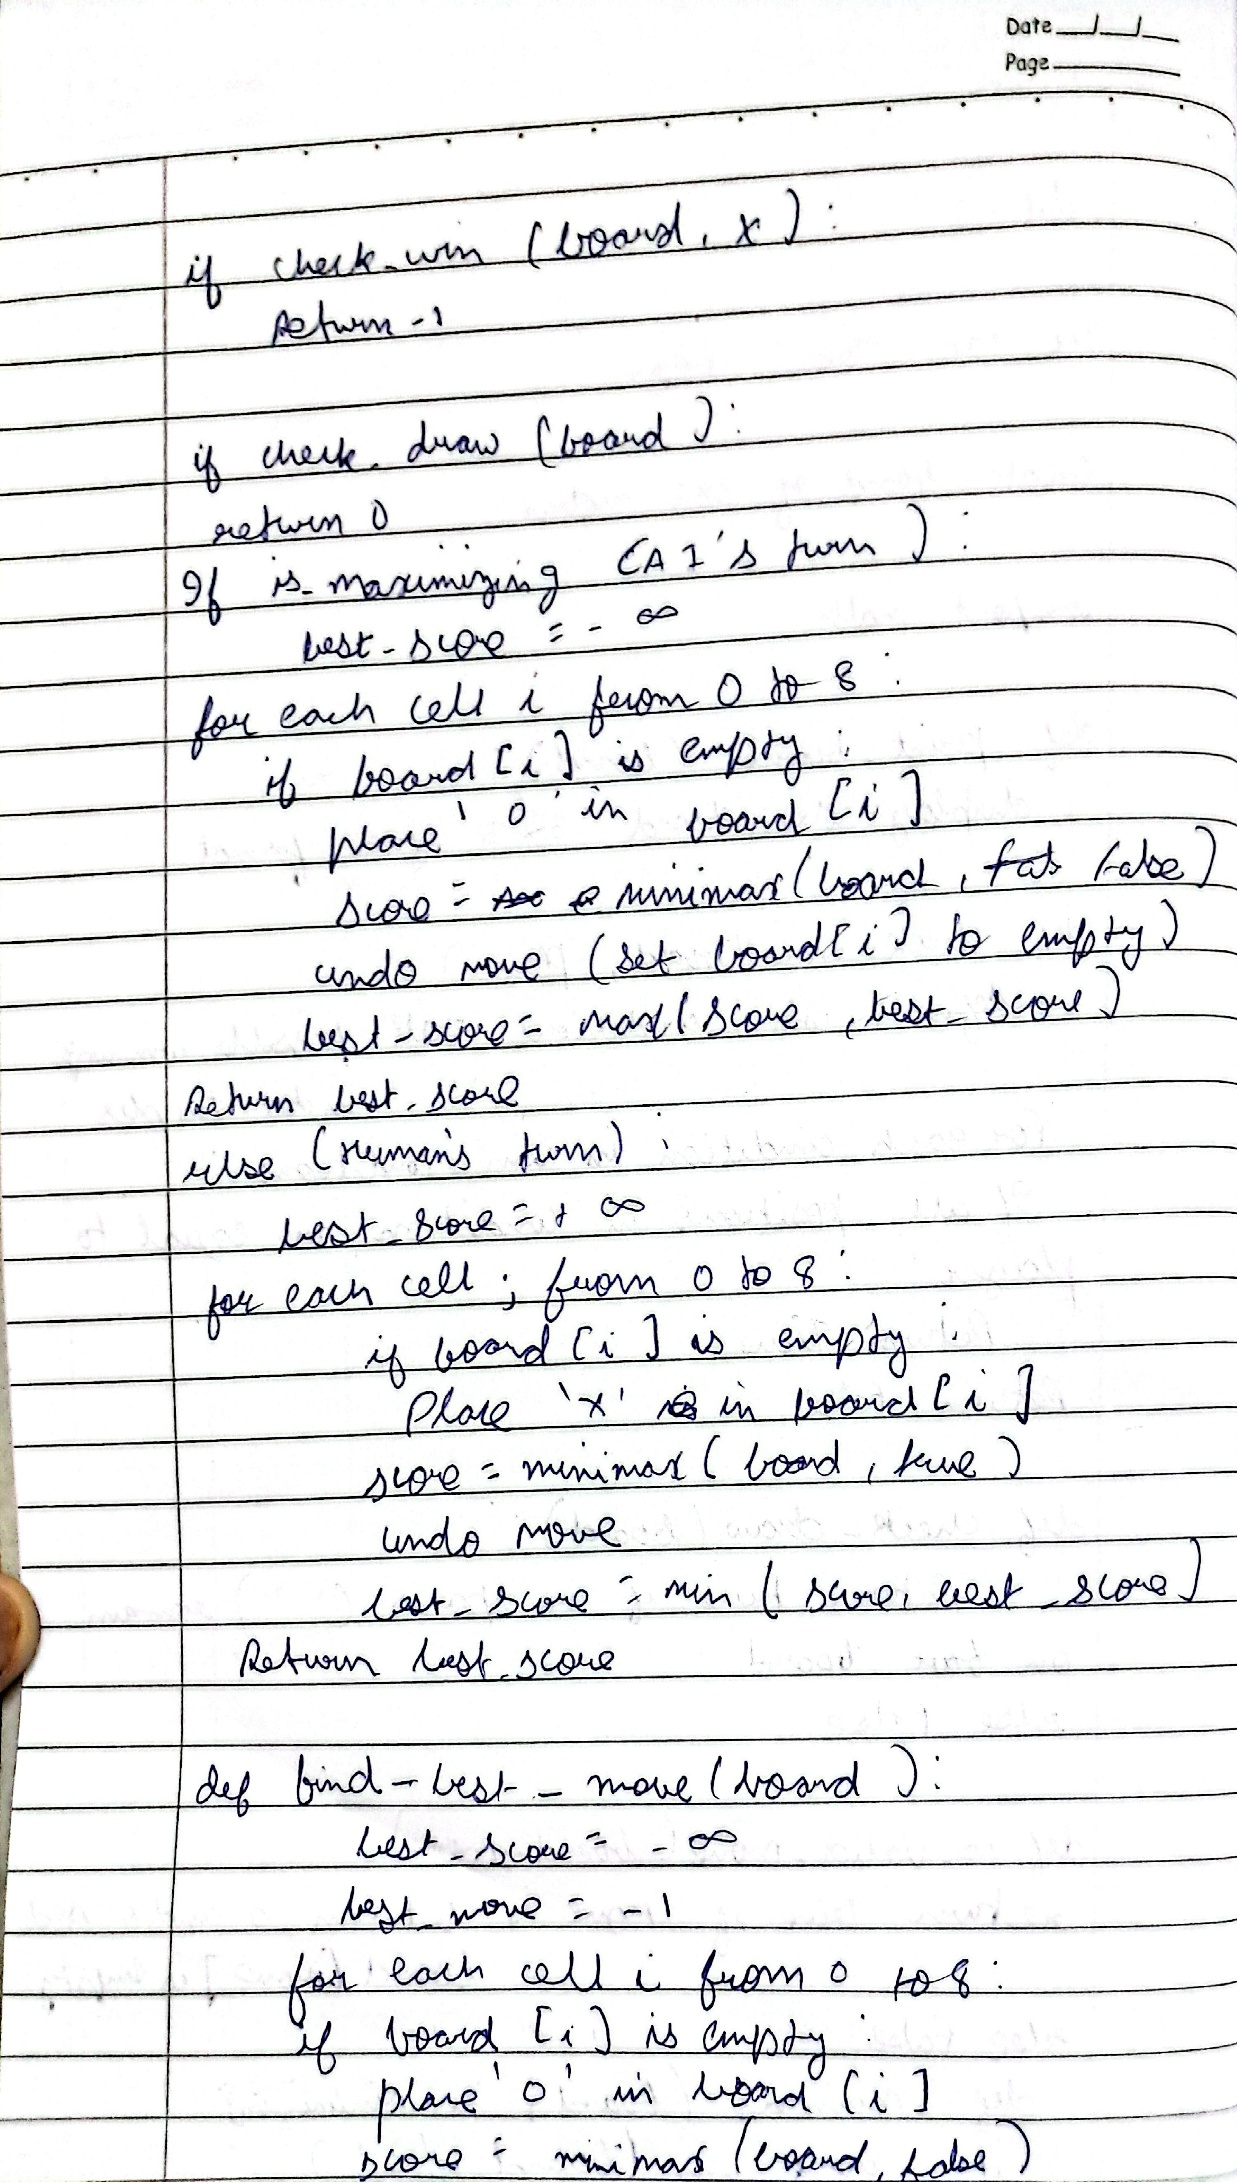 Date
Page
if check_win (board, x):
return -1
if check_draw (board):
return 0
If is_maximizing (AI's turn):
best_score = - ∞
for each cell i from 0 to 8:
if board [i] is empty:
place 'O' in board [i]
score = minimax (board, false)
undo move (set board [i] to empty)
best_score = max (score, best_score)
Return best_score
else (Human's turn):
best_score = + ∞
for each cell ; from 0 to 8:
if board [i] is empty:
Place 'X' in board [i]
score = minimax (board, true)
undo move
best_score = min (score, best_score)
Return best_score
def find_best_move (board):
best_score = - ∞
best_move = -1
for each cell i from 0 to 8:
if board [i] is empty:
place 'O' in board [i]
score = minimax (board, false)